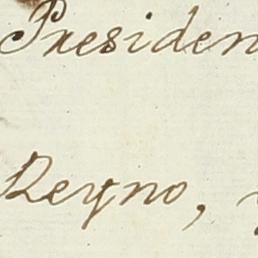 Presiden
Reyno,